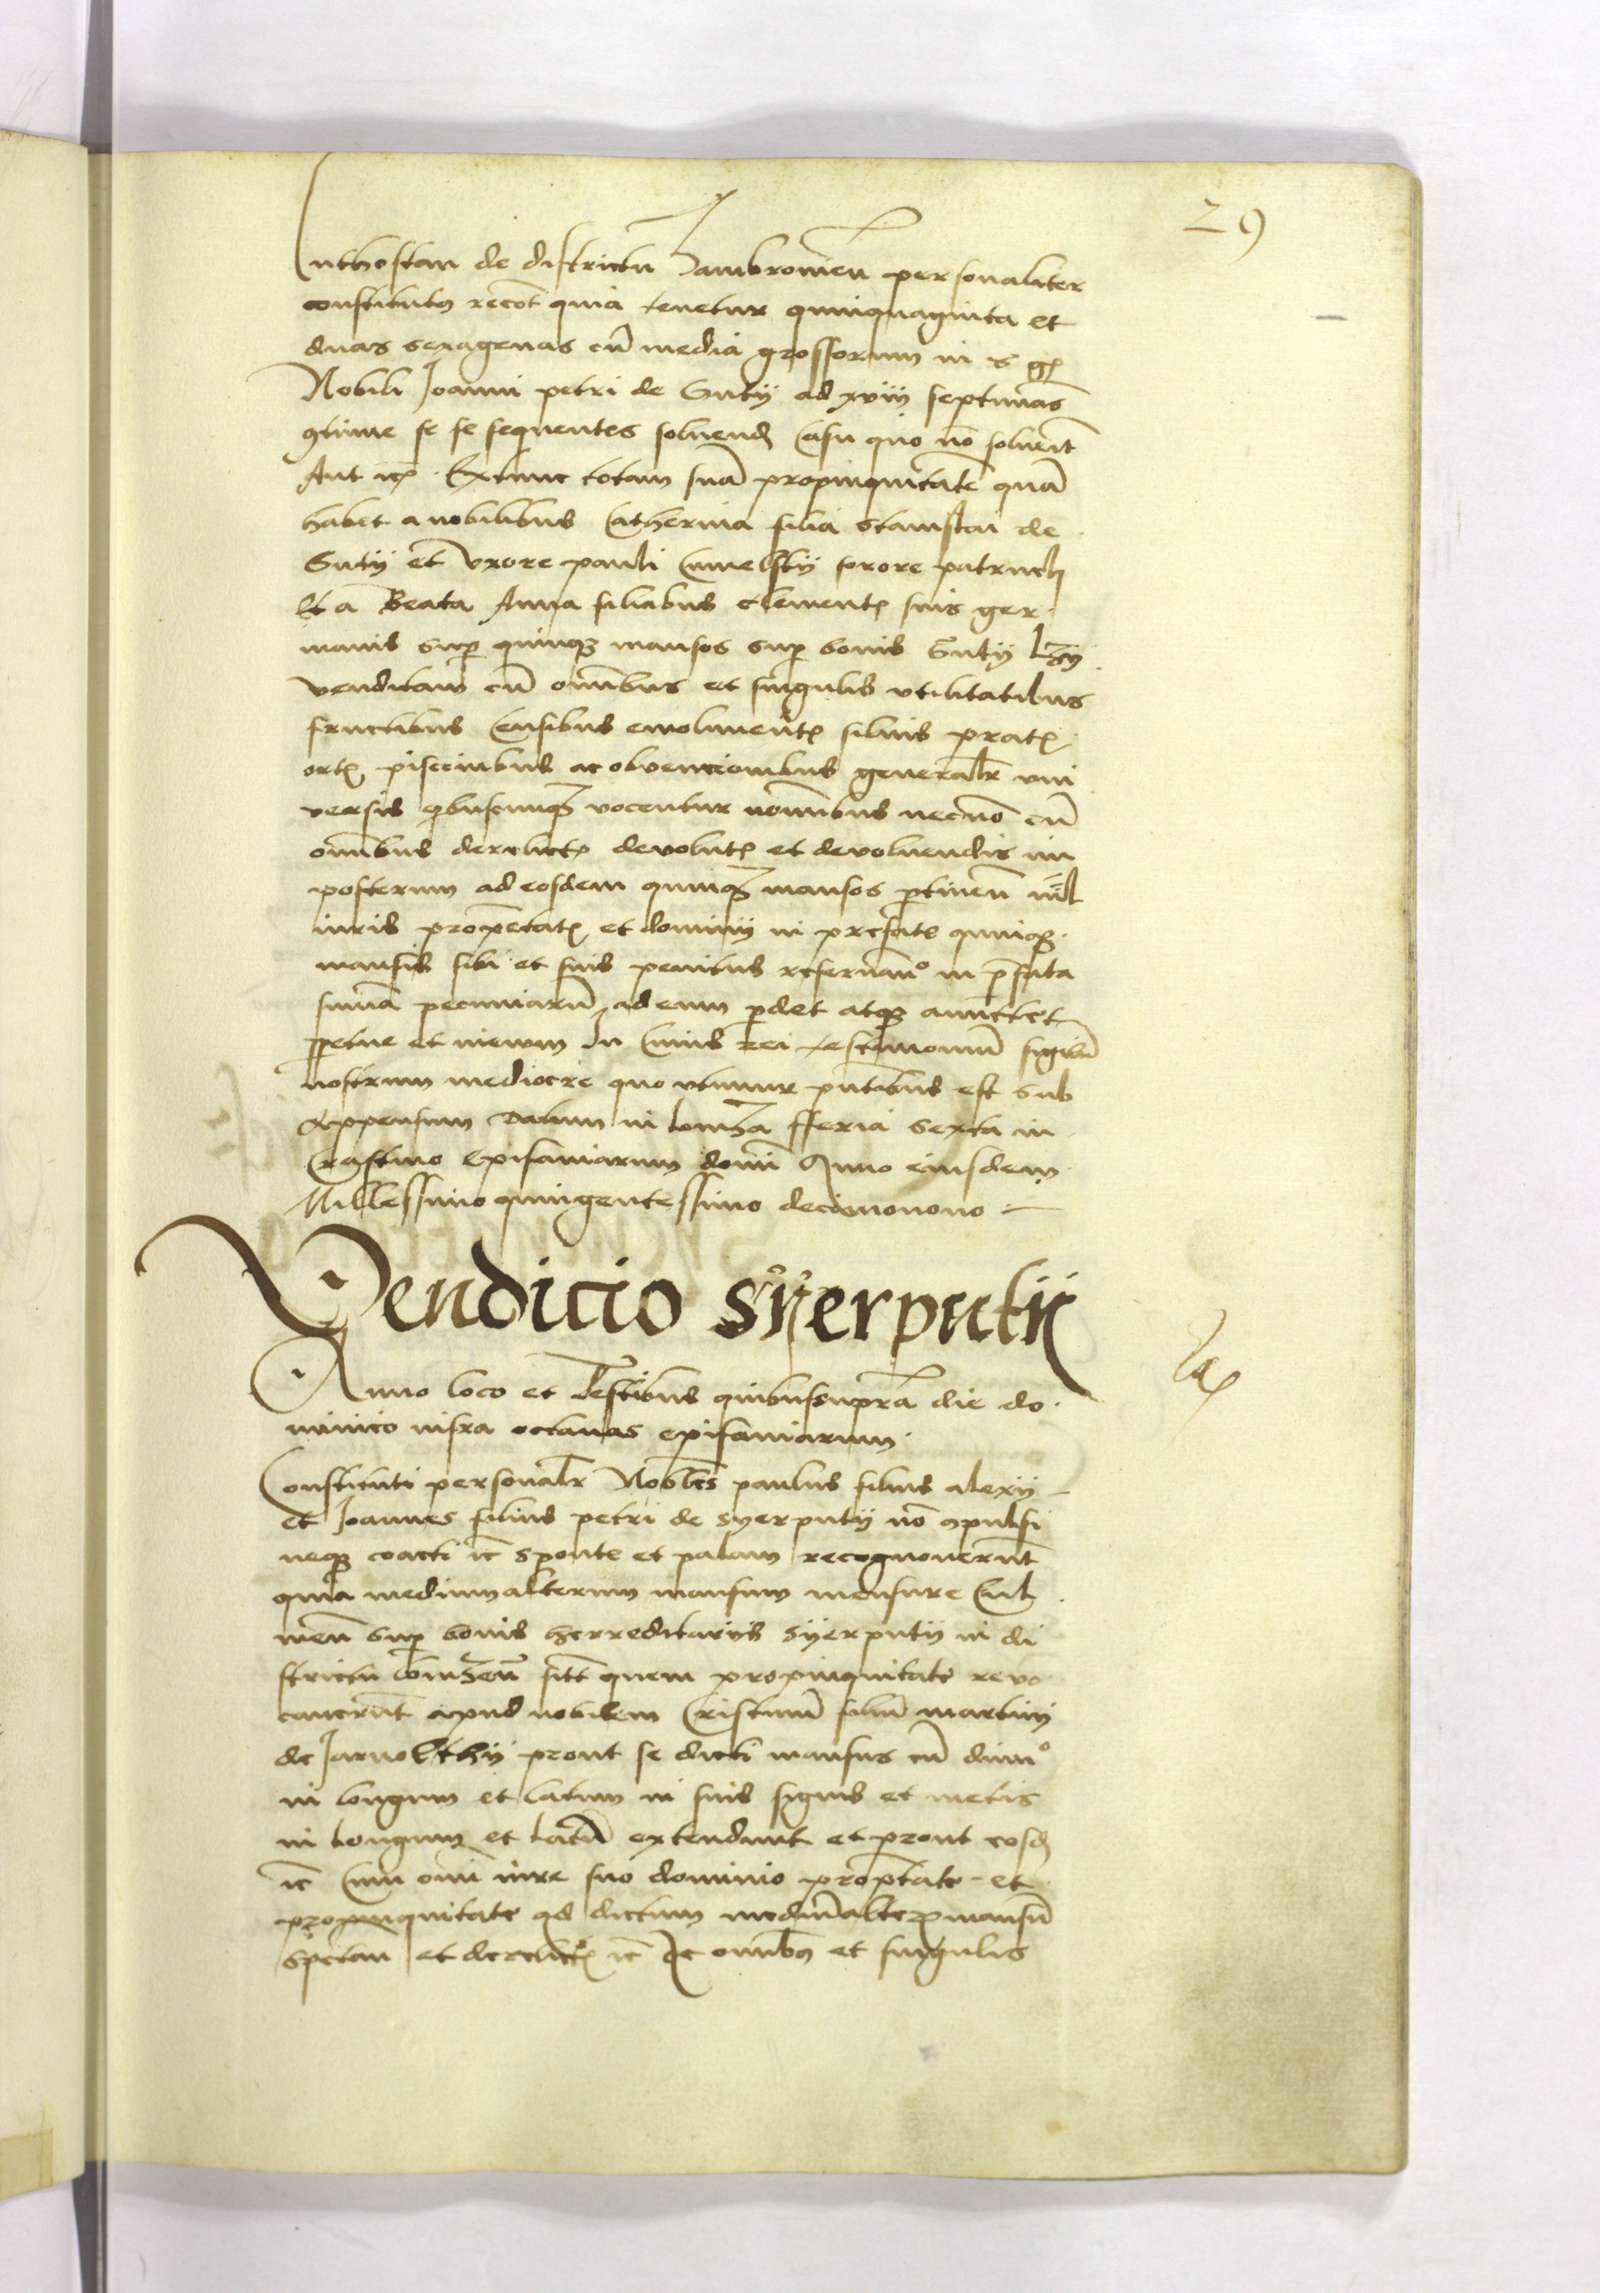 29
Luthostan de districtu Zambrowien personaliter
constitutus recot quia tenetur quinquaginta et
duas sexagenas cū media grossorum in
Nobili Joanni petri de Guty ad xviij septimas
se se sequentes soluend Casu quo nō soluerit
Aut Extunc totam suā propinquitatē quā
habet a nobilibus Catherina filia stanislai de
Guty et vxore pauli sorore patrueli
Et a Beata Anna filiabus clement suis ger
manis sup quinqz mansos sup bonis Guty
venditam cū omibus et singulis vtilitatibus
fructibus Censibus emoliment siluis prat
ort piscinibus ac obvencionibus generalr vni
versis qbuscunqz vocentur nomibus necnō cū
omibus derelict devolut et devoluendis in
posterum ad eosdem quinqz mansos ptinen nil
iuris propetat et dominij in prefate quinqz
mansis sibi et suis penitus reseruando in pfata
summā pecuniarū ad eum pdet atqz amittet
ppetue et in ewm In Cuius rei testimoniū sigillū
nostrum mediocre quo vtimur pntibus est sub
Appensum Datum in lomza fferia sexta in
Crastino Epifaniarum domi Anno eiusdem
Millessimo quingentessimo decimonono
Vendicio syerputij
Anno loco et Testibus quibussupra die do
minico infra octauas epifaniarum
Constituti personalr Nobles paulus filius alexij
et Joannes filius petri de syerputij nō cpulsi
neqz coacti ic sponte et palam recognouerunt
quia mediumalterum mansum mensure Cul
men sup bonis herreditarijs syerputij in di
strictu lomzen sitt quem propinquitate revo
cauerūt apud nobilem Cristinū filiū martini
de Jarnolthy prout se dicti mansus cū dimo
in longum et latum in suis signis et metis
in longum et latū extendunt et prout eosd
ic Cum omi iure suo dominio proptate et
propinquitate ad dictum mediūalterū mansū
spctan et derelict ic Ac omibus et singulis